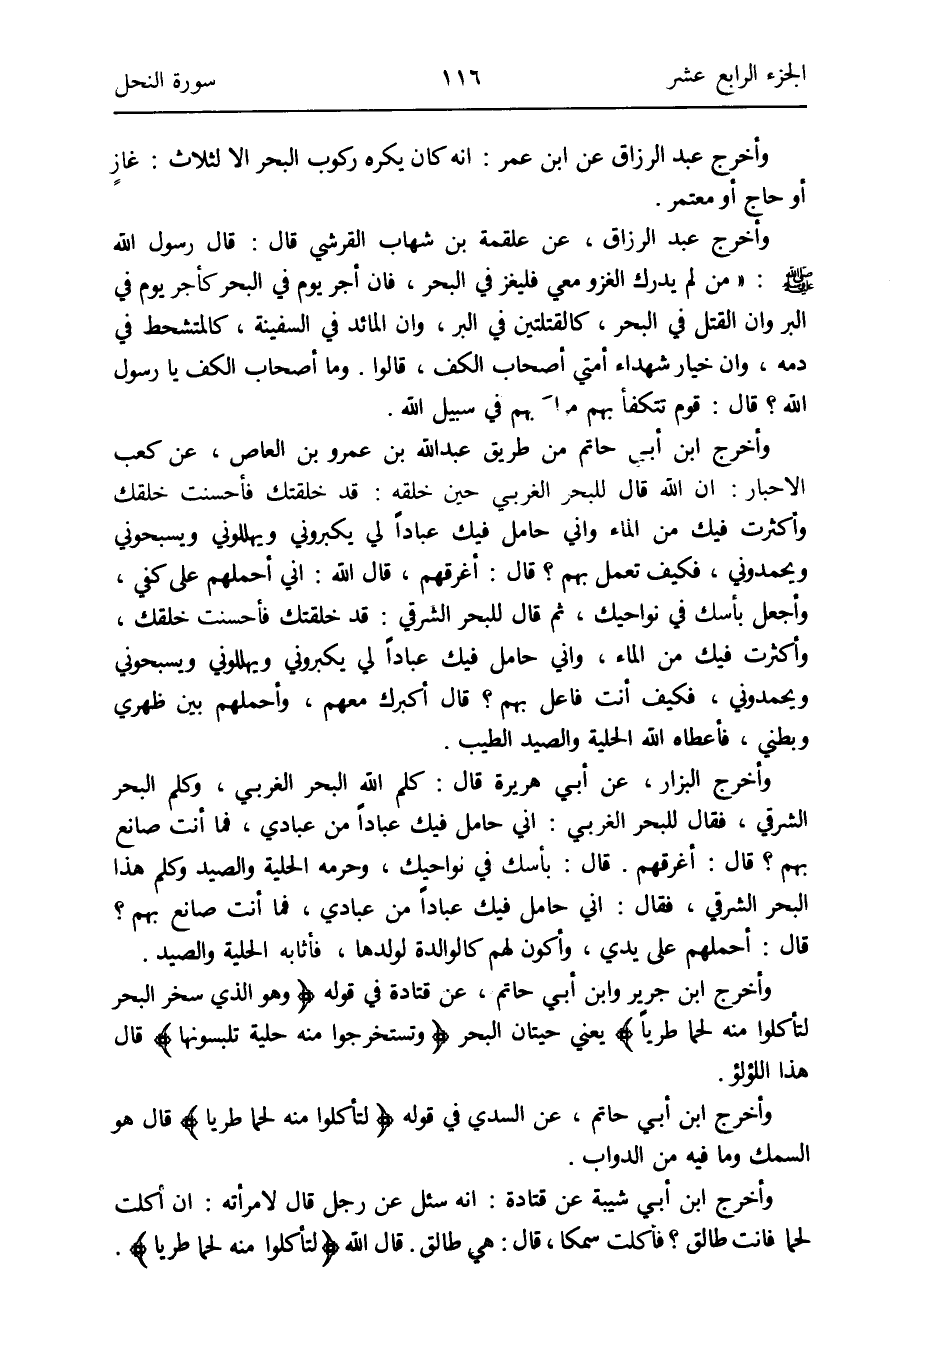 الجزء الرابع عشر ١١٦ سورة النحل
وأخرج عبد الرزاق عن ابن عمر : انه كان يكره ركوب البحر الا لثلاث : غازٍ
أو حاج أو معتمر .
وأخرج عبد الرزاق ، عن علقمة بن شهاب القرشي قال : قال رسول الله
ﷺ : « من لم يدرك الغزو معي فليغز في البحر ، فان أجر يوم في البحر كأجر يوم في
البر وان القتل في البحر ، كالقتلتين في البر ، وان المائد في السفينة ، كالمتشحط في
دمه ، وان خيار شهداء أمتي أصحاب الكف ، قالوا . وما أصحاب الكف يا رسول
الله ؟ قال : قوم تتكفأ بهم في سبيل الله .
وأخرج ابن أبي حاتم من طريق عبدالله بن عمرو بن العاص ، عن كعب
الاحبار : ان الله قال للبحر الغربي حين خلقه : قد خلقتك فأحسنت خلقك
وأكثرت فيك من الماء واني حامل فيك عباداً لي يكبروني ويهللوني ويسبحوني
ويحمدوني ، فكيف تعمل بهم ؟ قال : أغرقهم ، قال الله : اني أحملهم على كفي ،
وأجعل بأسك في نواحيك ، ثم قال للبحر الشرقي : قد خلقتك فأحسنت خلقك ،
وأكثرت فيك من الماء ، واني حامل فيك عباداً لي يكبروني ويهللوني ويسبحوني
ويحمدوني ، فكيف أنت فاعل بهم ؟ قال أكبرك معهم ، وأحملهم بين ظهري
وبطني ، فأعطاه الله الحلية والصيد الطيب .
وأخرج البزار ، عن أبي هريرة قال : كلم الله البحر الغربي ، وكلم البحر
الشرقي ، فقال للبحر الغربي : اني حامل فيك عباداً من عبادي ، فما أنت صانع
بهم ؟ قال : أغرقهم . قال : بأسك في نواحيك ، وحرمه الحلية والصيد وكلم هذا
البحر الشرقي ، فقال : اني حامل فيك عباداً من عبادي ، فما أنت صانع بهم ؟
قال : أحملهم على يدي ، وأكون لهم كالوالدة لولدها ، فأثابه الحلية والصيد .
وأخرج ابن جرير وابن أبي حاتم ، عن قتادة في قوله ﴿ وهو الذي سخر البحر
لتأكلوا منه لحما طرياً ﴾ يعني حيتان البحر ﴿ وتستخرجوا منه حلية تلبسونها ﴾ قال
هذا اللؤلؤ .
وأخرج ابن أبي حاتم ، عن السدي في قوله ﴿ لتأكلوا منه لحما طريا ﴾ قال هو
السمك وما فيه من الدواب .
وأخرج ابن أبي شيبة عن قتادة : انه سئل عن رجل قال لامرأته : ان أكلت
لحما فانت طالق ؟ فأكلت سمكا ، قال : هي طالق . قال الله ﴿ لتأكلوا منه لحما طريا ﴾ .